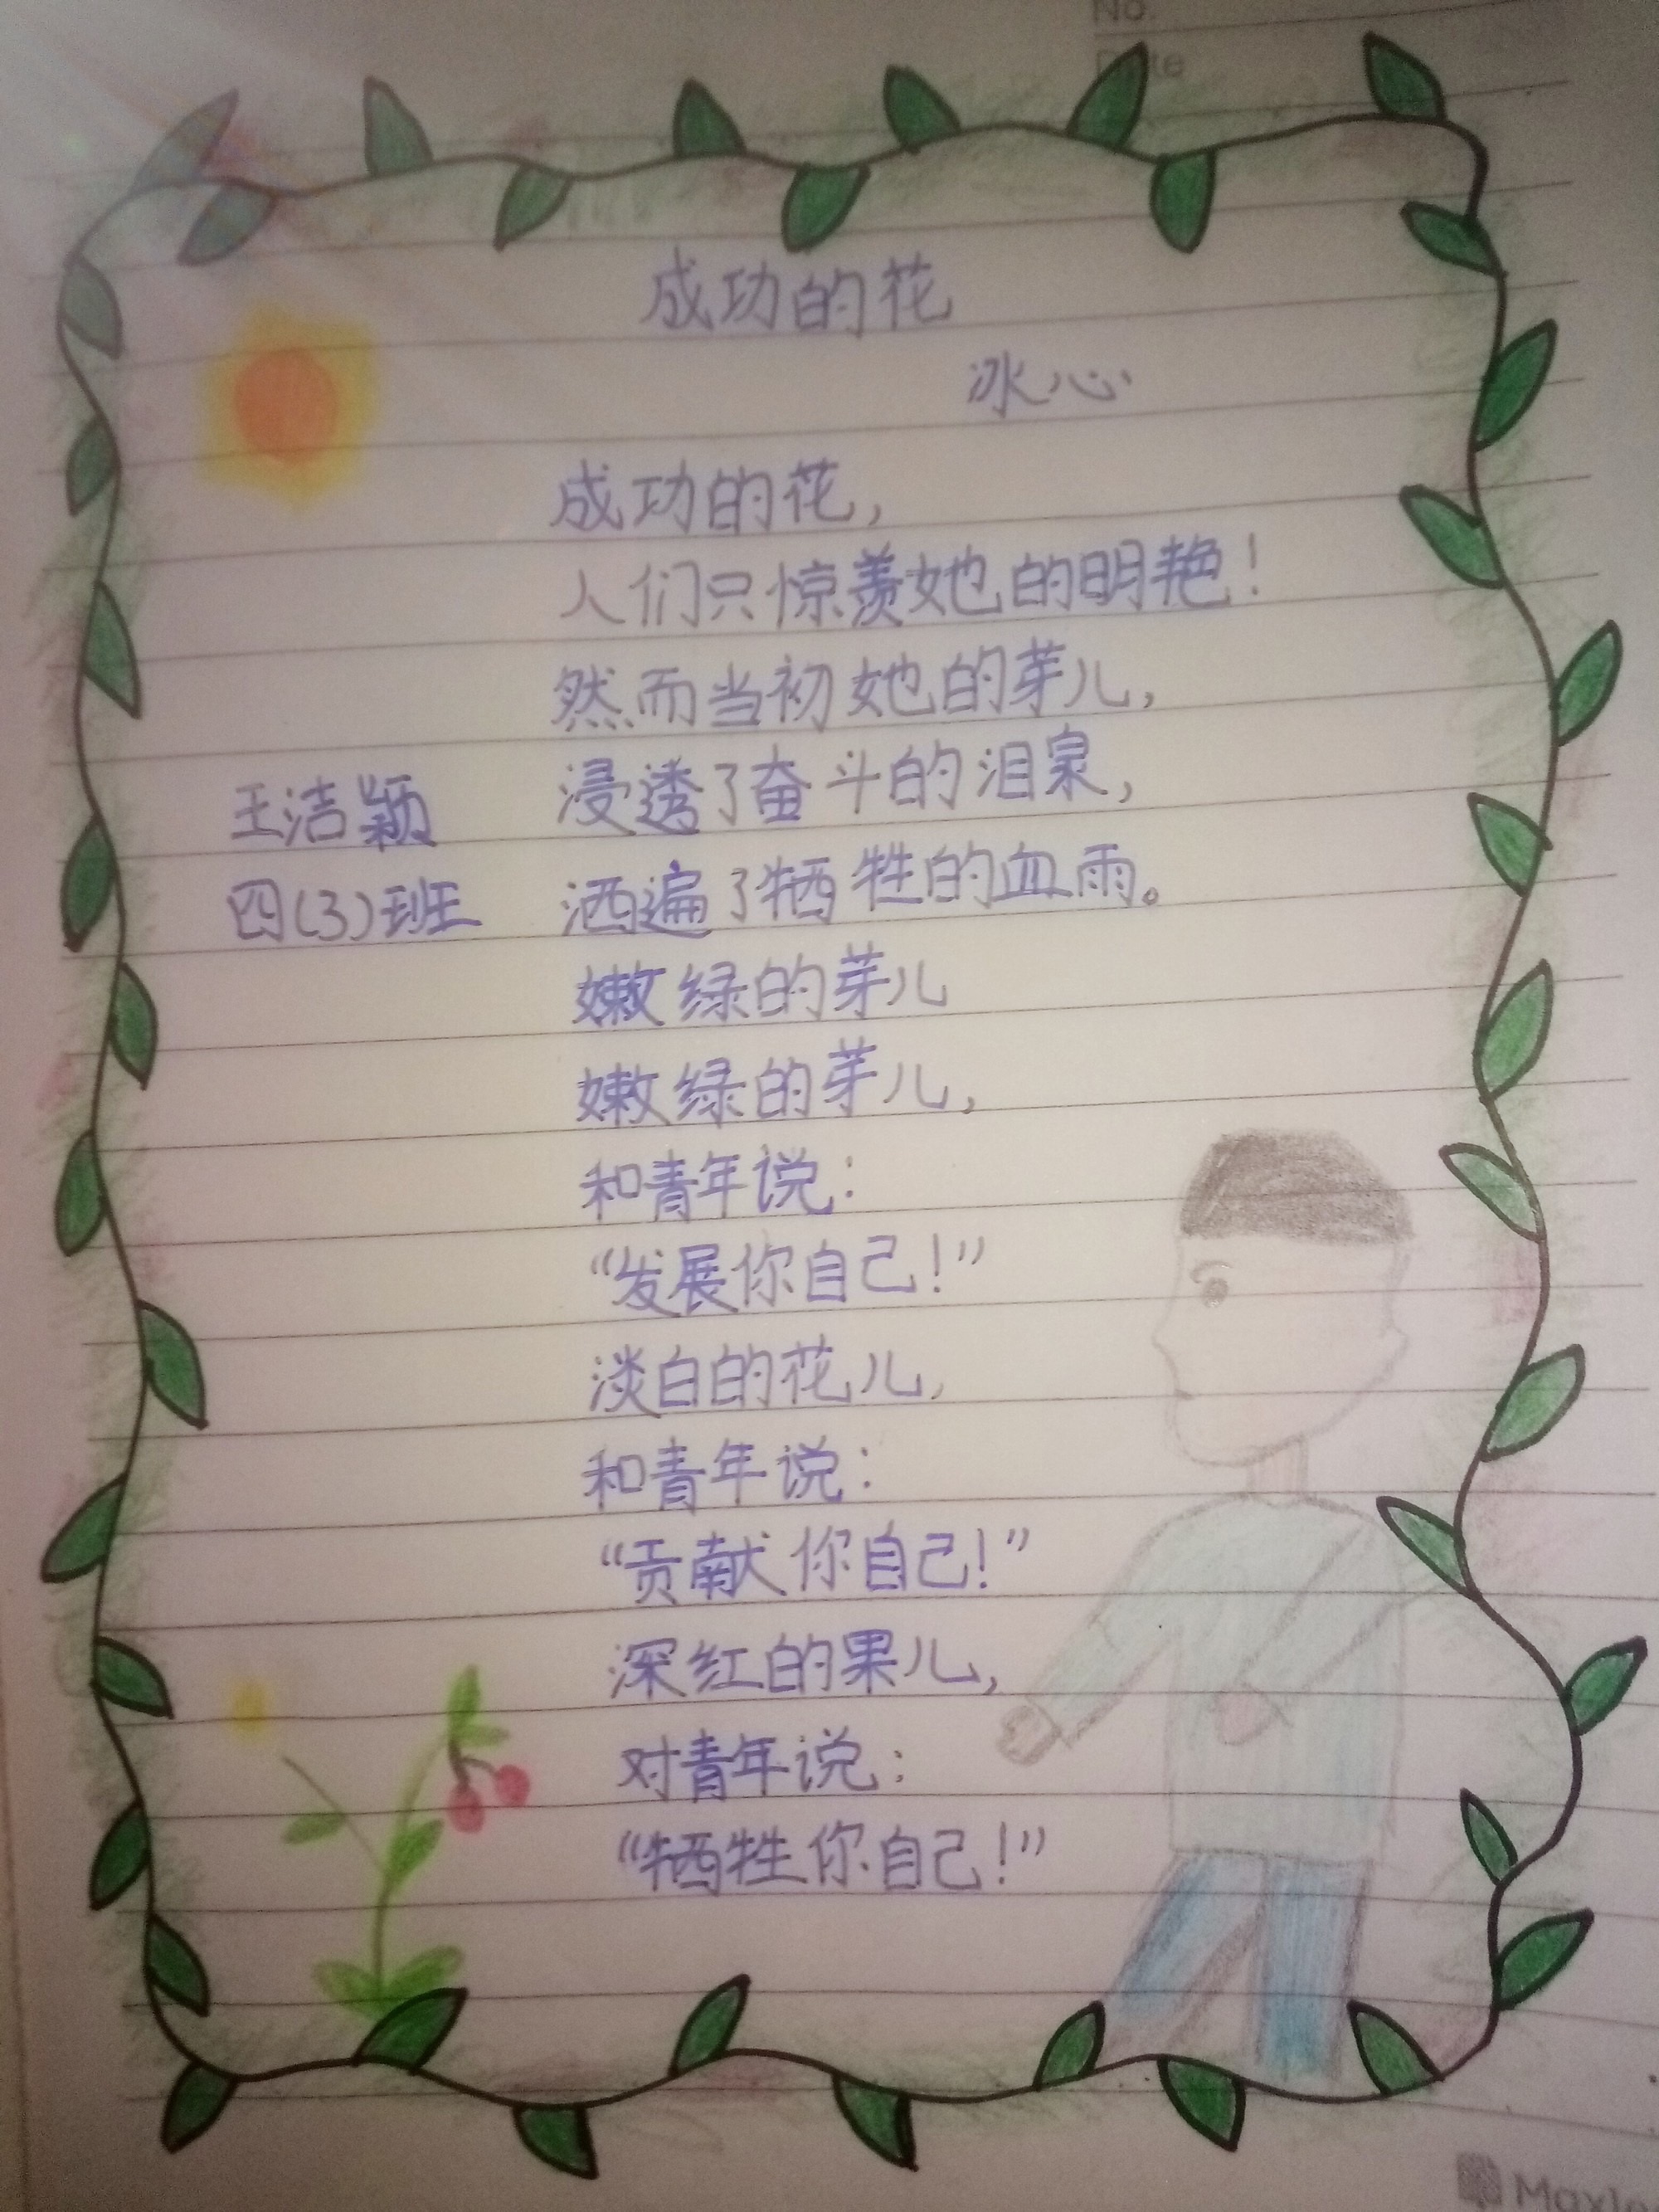 No.
Date
成功的花
冰心
成功的花，
人们只惊羡她的明艳！
然而当初她的芽儿，
浸透了奋斗的泪泉，
洒遍了牺牲的血雨。
王洁颖
四(3)班
嫩绿的芽儿
嫩绿的芽儿，
和青年说：
“发展你自己！”
淡白的花儿，
和青年说：
“贡献你自己！”
深红的果儿，
对青年说：
“牺牲你自己！”